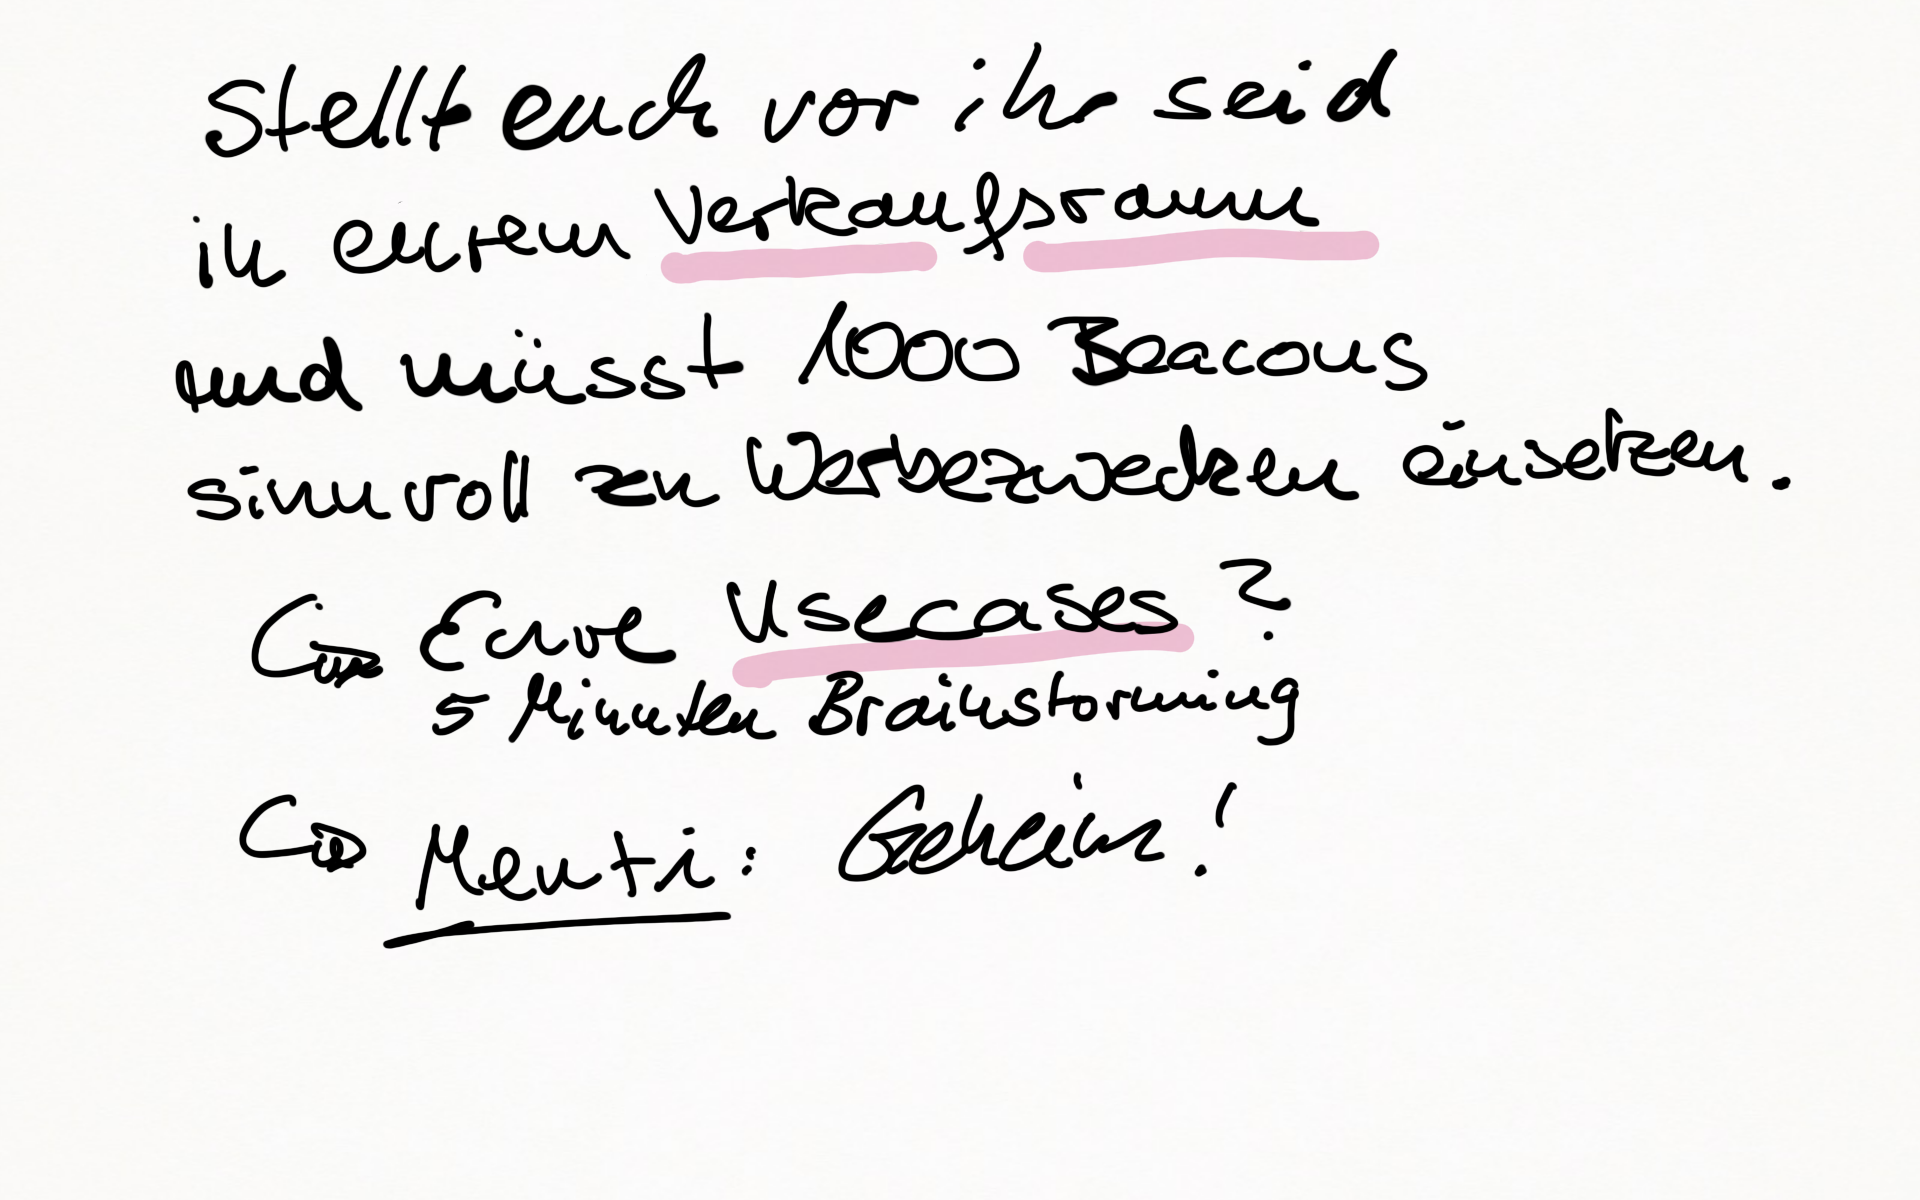 Stellt euch vor ihr seid
in eurem Verkaufsraum
und müsst 1000 Beacons
sinnvoll zu Werbezwecken einsetzen.
Eure Usecases?
5 Minuten Brainstorming
Menti: Geheim!